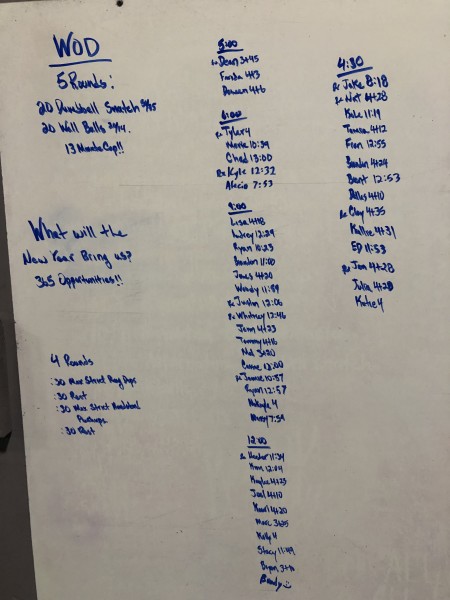 WOD
5 Rounds:
20 Dumbbell Snatch
20 Wall Balls 20/14.
13 Minute Cap!!
What will the
New Year Bring us?
365 Opportunities!!
4 Rounds
:30 Max Strict Ring Dips
:30 Rest
:30 Max Strict Handstand
Pushups
:30 Rest
5:00
Rx Dean 3+95
4+3
4+6
6:00
Rx Tyler 4
10:39
Chad 13:00
Rx Kyle 12:32
Alecia 7:53
9:00
Lisa 4+18
Audrey 12:29
Ryan 10:23
Brandon 11:00
4+20
Wendy 11:59
Rx Justin 12:06
Rx Whitney 12:46
Jenn 4+23
Tammy 4+16
3+20
Rx 10:57
Ryan 12:57
4
7:59
12:00
Rx 11:34
12:04
Kaylee 4+25
Joel 4+10
4+20
Marc
Kelly 4
Stacy 11:49
Bryan
Brandy
4:30
Rx Jake 8:18
Rx Nat 4+28
Kate 11:19
4+12
Fran 12:55
Brandon 4+24
Brent 12:53
Dallas 4+10
Rx Clay 4+35
Kallie 4+31
ED 11:53
Rx Jon 4+28
Julia 4+28
Katie 4